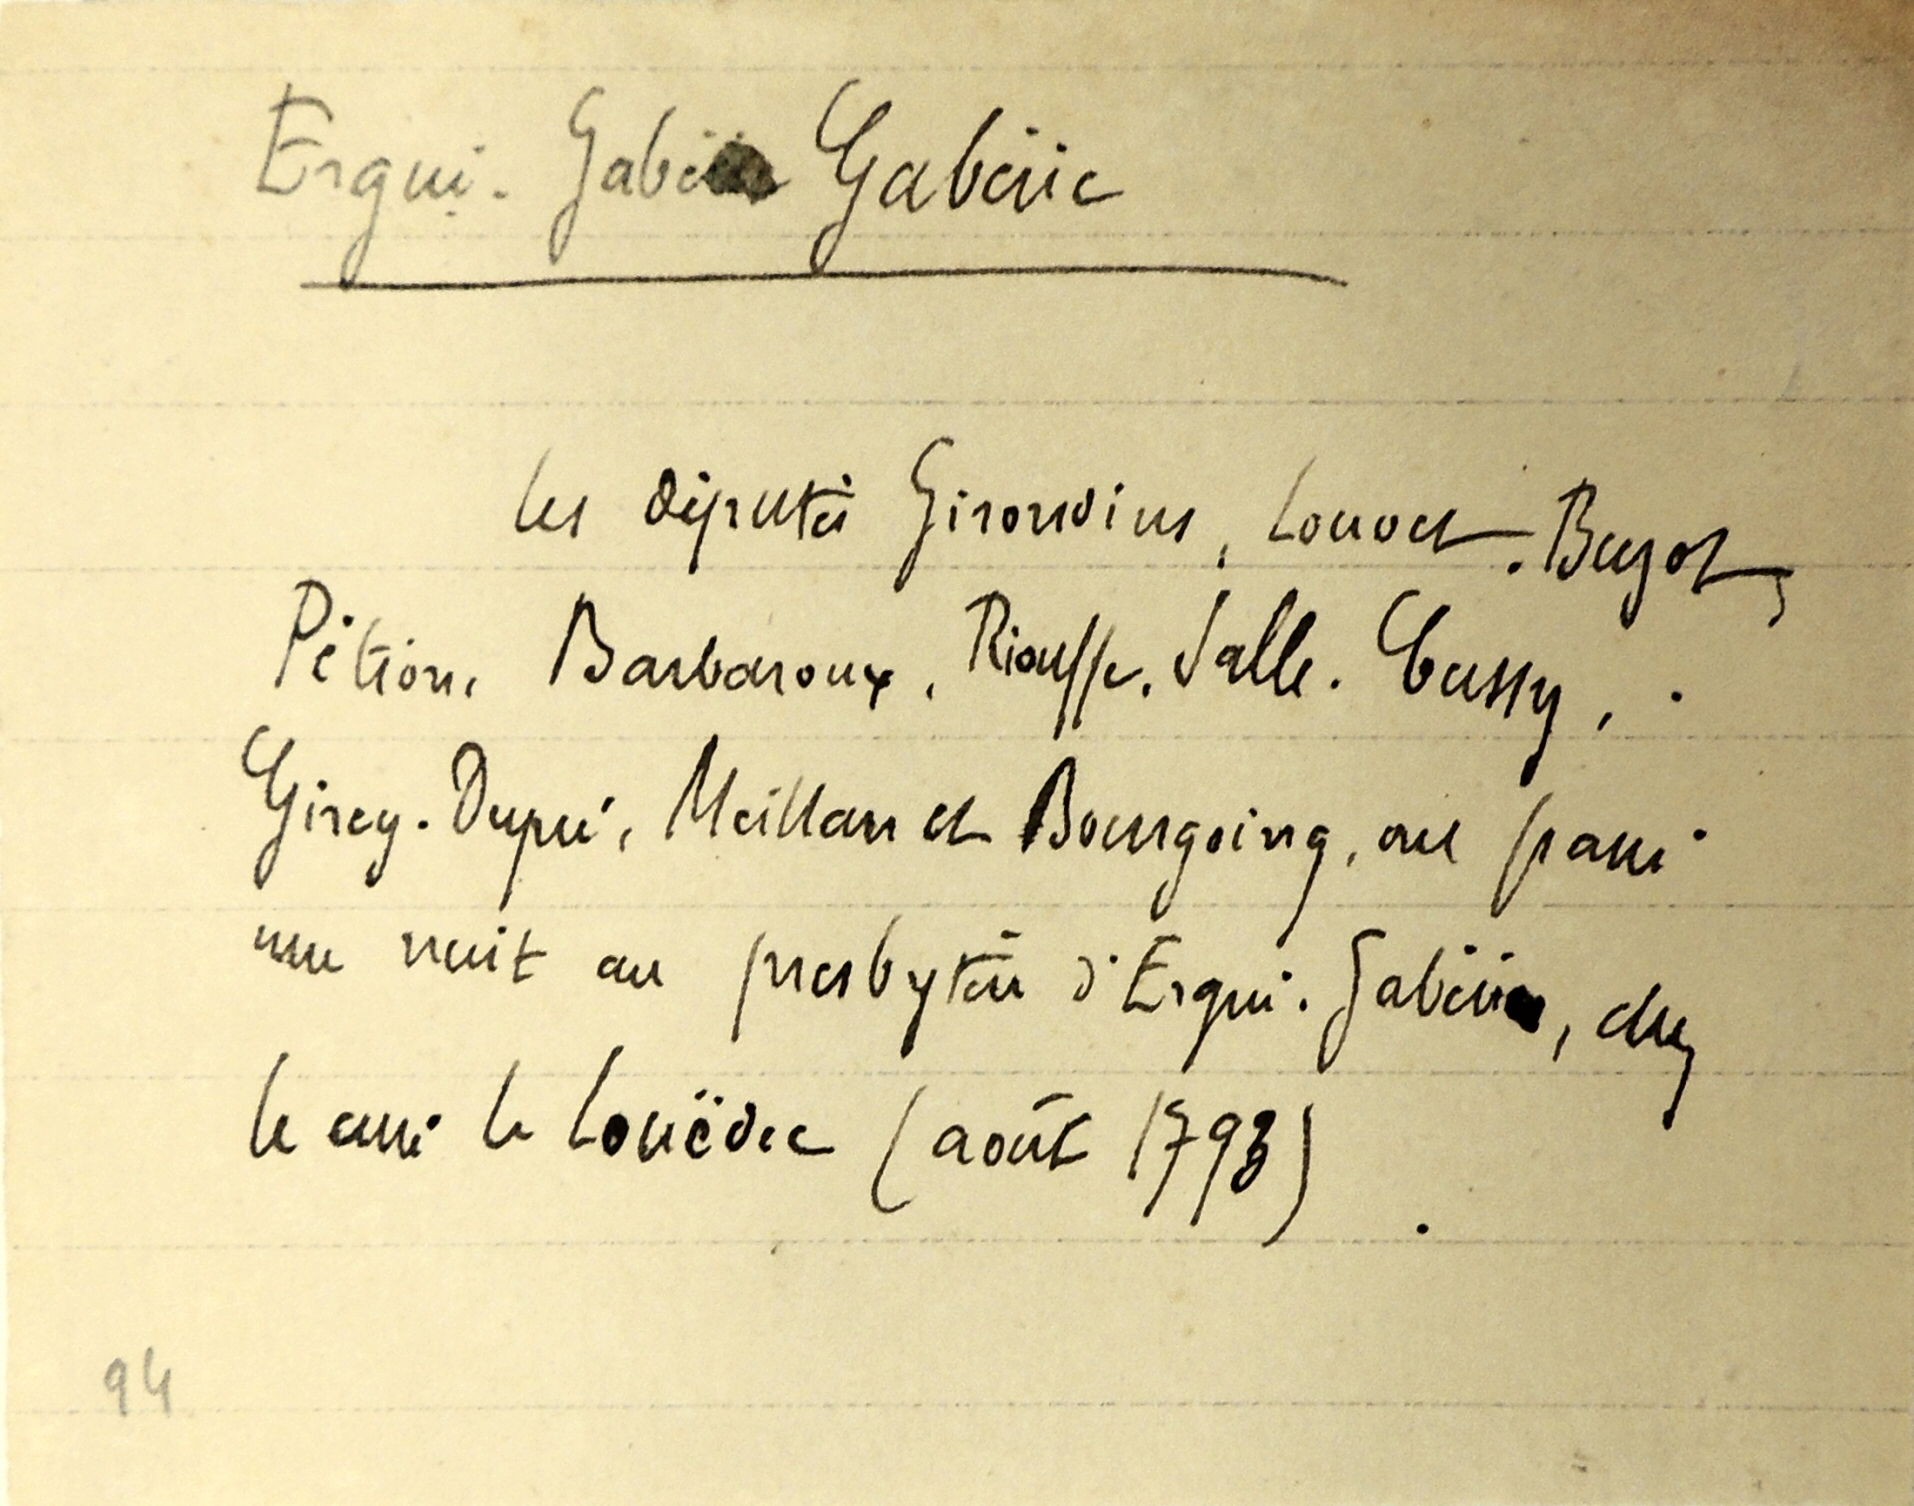 Ergui. Gabéric
les députés Girondins, Louvet. Buzot,
Pétion, Barbaroux, Riouffe. Salle. Cussy,
Girey-Dupré, Meillan et Bourgoing, ont passé
une nuit au presbytère d'Ergui. Gabéric, chez
le curé le Louëdec (août 1793).
94